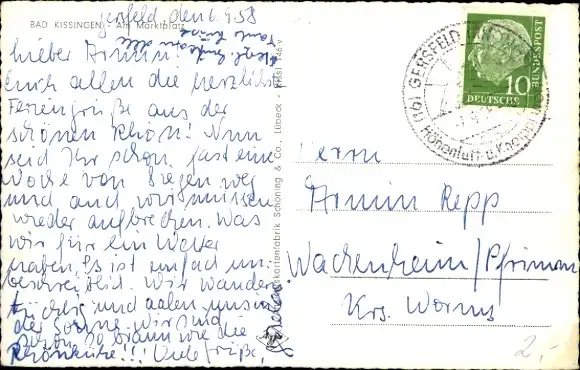 Gersfeld, den 6.9.58
BAD KISSINGEN Am Marktplatz
Lieber Armin!
Euch allen die herzlichsten
Feriengrüße aus der
schönen Rhön! Nun
seid Ihr schon fast eine
Woche von Siegen weg
und auch wir müssen
wieder aufbrechen. Was
wir für ein Wetter
haben, es ist einfach un-
beschreiblich. Wir wandern
tüchtig und aalen uns in
der Sonne. Wir sind
schon so braun wie die
Rhönkühe!!! Viele Grüße,
Herzl. Grüße an alle
Tante
Ansichtskartenfabrik Schöning & Co., Lübeck
10
DEUTSCHE
BUNDESPOST
(16) GERSFELD
Höhenluft- u. Kneipp
Herrn
Armin Repp
Wachenheim/Pfrimm
Krs. Worms
2,-